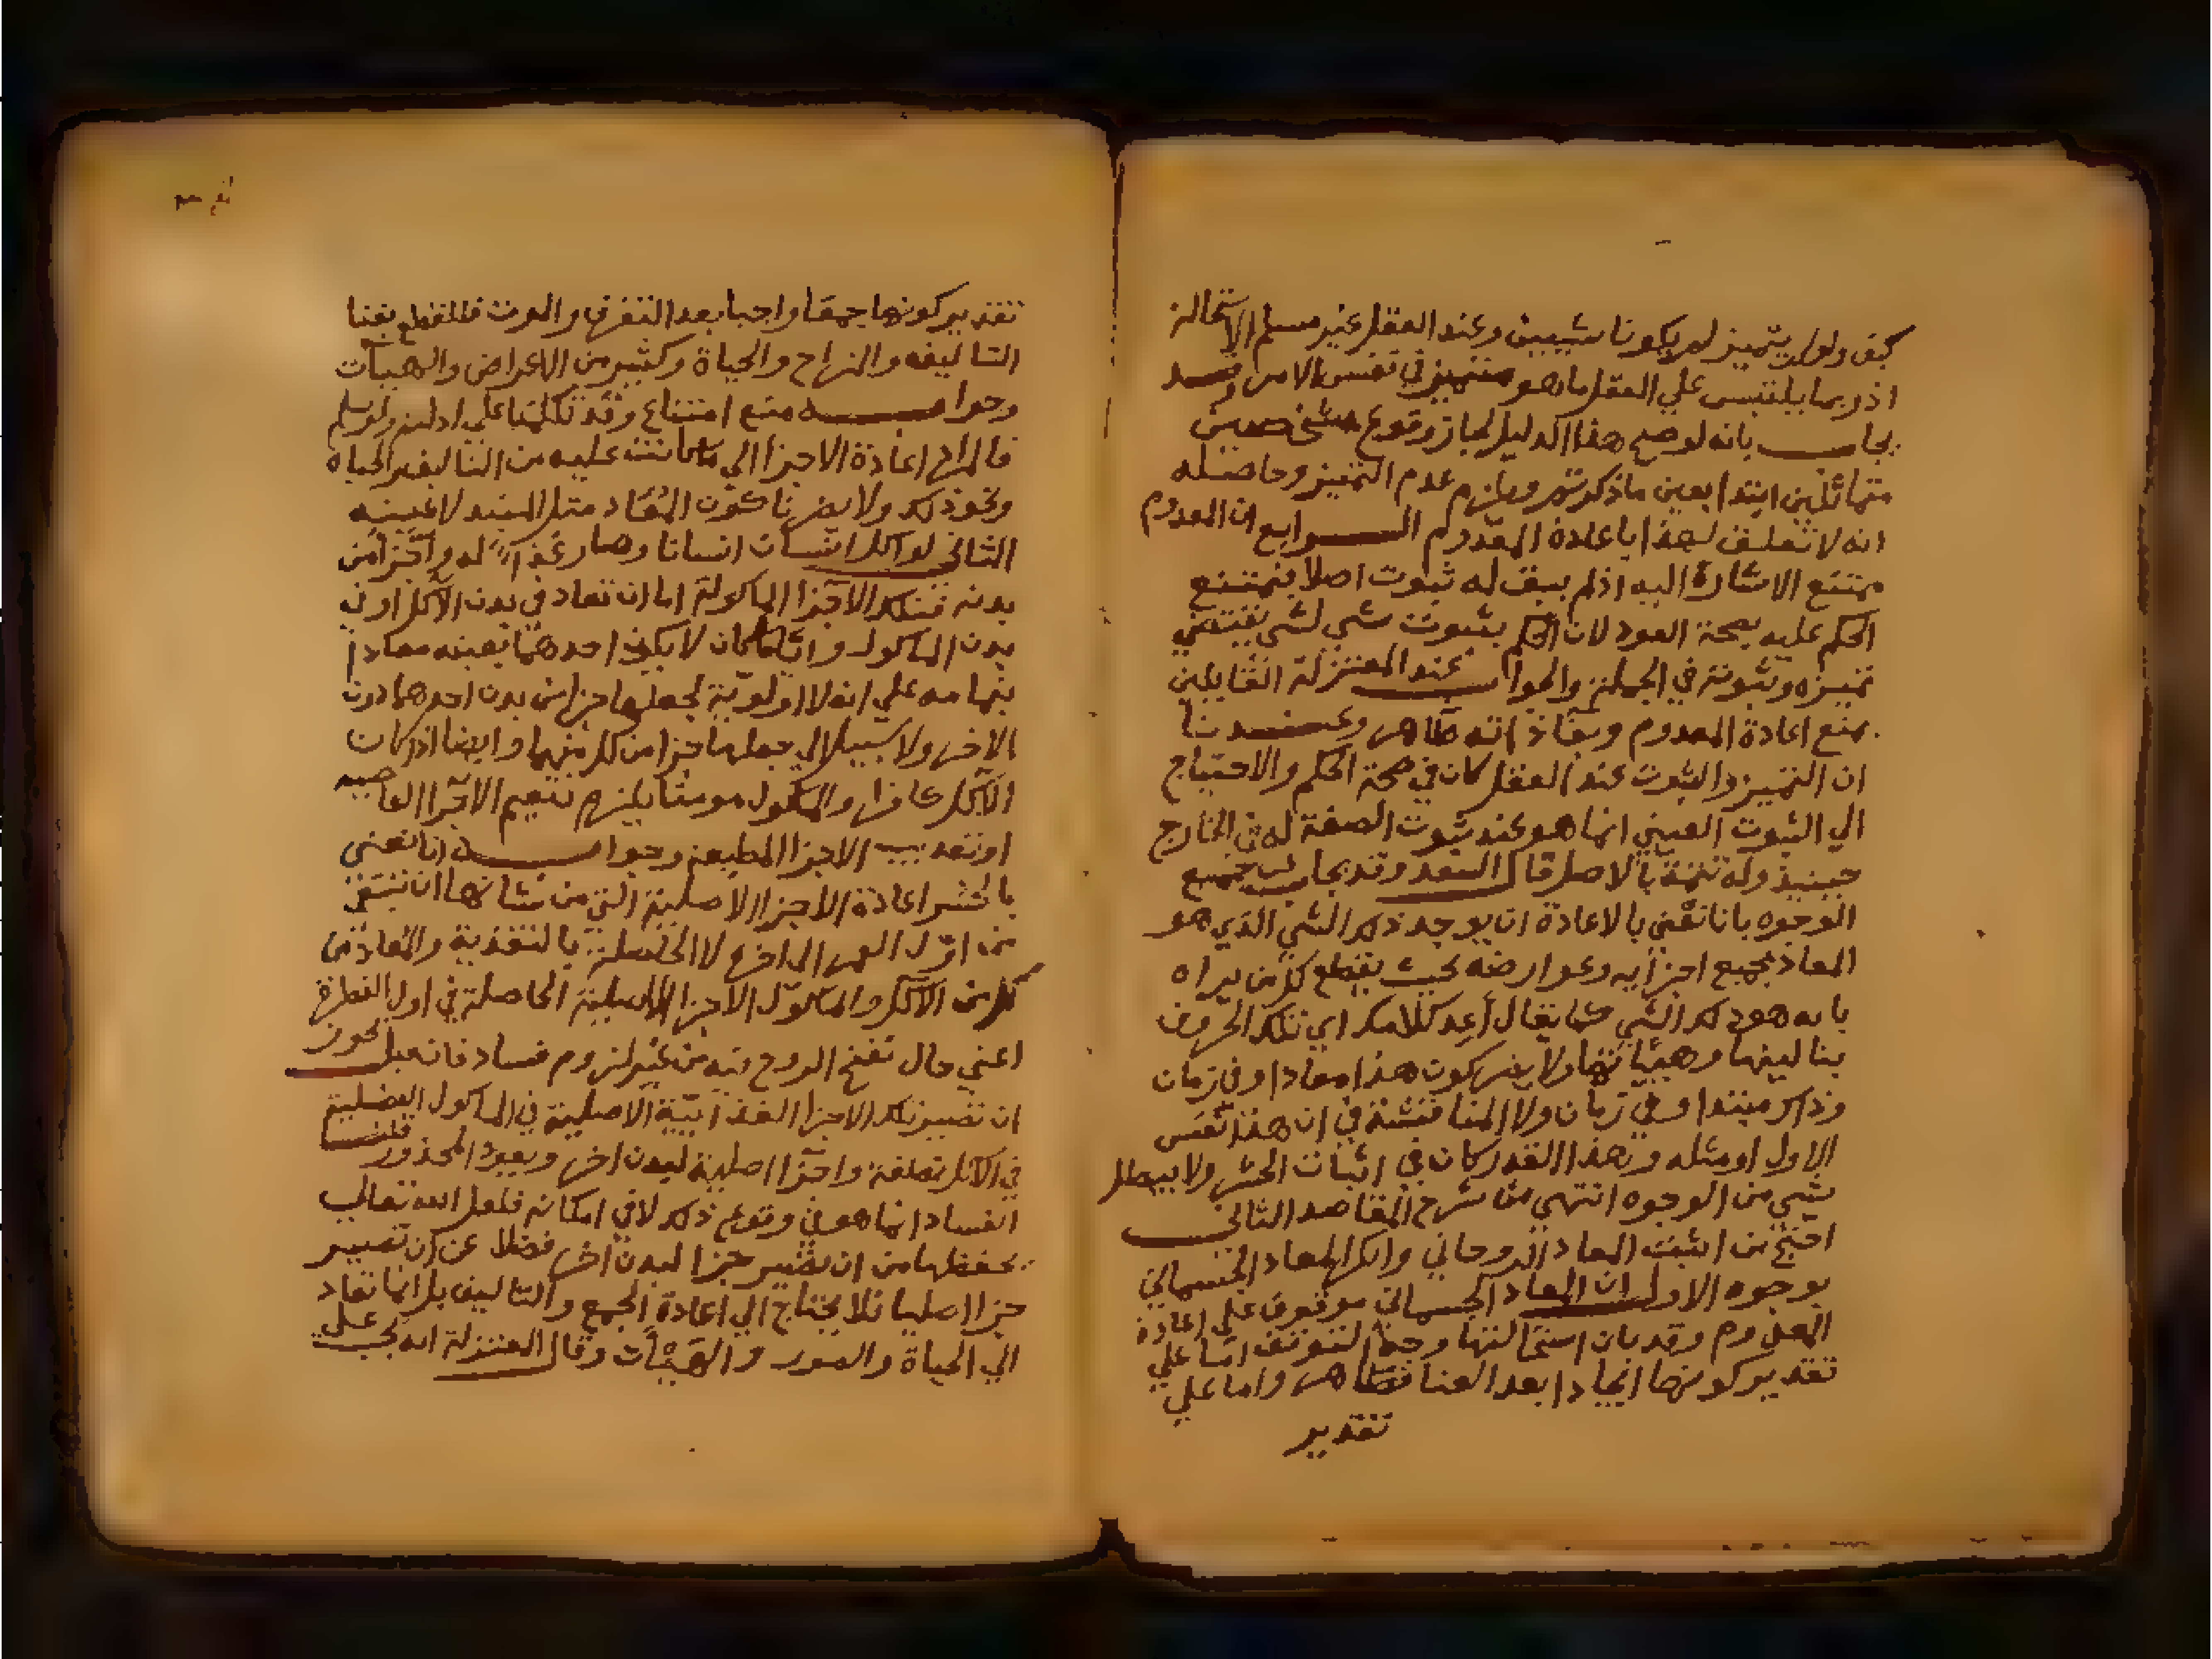 كيف ولو لم يتميز لم يكونا شيين وعند العقل غير مسلم الاستحالة
اذ ربما يلتبس علي العقل ما هو متميز في نفس الامر وقد
يجاب بانه لو صح هذا الدليل لجاز وقوع شخصين
متماثلين ابتدا بعين ما ذكرتم ويلزم عدم التميز وحاصله
انه لا تعلق لهذا باعادة المعدوم الرابع ان المعدوم
ممتنع الاشارة اليه اذ لم يبق له ثبوت اصلا فيمتنع
الحكم عليه بصحة العود لان الحكم بثبوت شي لشي يقتضي
تميزه وثبوته في الجملة والجواب عند المعتزلة القايلين
بمنع اعادة المعدوم وبقا ذاته ظاهر وعندنا
ان التميز والثبوت عند العقل كاف في صحة الحكم والاحتياج
الي الثبوت العيني انما هو عند ثبوت الصفة له في الخارج
حينيذ وله تتمة بالاصل قال السعد وقد يجاب عن جميع
الوجوه بانا نعني بالاعادة ان يوجد ذلك الشي الذي هو
المعاد بجميع اجزايه وعوارضه بحيث يقطع كل من يراه
بانه هو ذلك الشي كما يقال أعد كلامك اي تلك الحروف
بتاليفها وهيئاتها ولا يضر كون هذا معادا وفي زمان
وذاك مبتدا وفي زمان ولا المناقشة في ان هذا نفس
الاول او مثله وهذا القدر كاف في اثبات الحشر ولا يبطل
بشي من الوجوه انتهي من شرح المقاصد الثاني
احتج من اثبت المعاد الروحاني وانكر المعاد الجسماني
بوجوه الاول ان المعاد الجسماني موقوف علي اعادة
المعدوم وقد بان استحالتها وجه التوقف اما علي
تقدير كونها ايجادا بعد الفنا فظاهر واما علي
تقدير
تقدير كونها جمعا واجبا بعد التفرق والموت فللقطع بفنا
التاليف والمزاح والحياة وكثير من الاعراض والهيآت
وجوابه منع امتناع وقد تكلمنا علي ادلته ولو سلم
فالمراد اعادة الاجزا الي ما كانت عليه من التاليف والحياة
ونحو ذلك ولا يضرنا كون المعاد مثل المبتدا لا عينه
الثاني لو اكل انسان انسانا وصار غذاء له واجزا من
بدنه فتلك الاجزا الماكولة اما ان تعاد في بدن الاكل او في
بدن الماكول وايا ما كان لا يكون احدهما بعينه معادا
بتمامه علي انه لا اولوية لجعلها جزا من بدن احدهما دون
الاخر ولا سبيل الي جعلها جزا من كل منهما وايضا اذا كان
الآكل كافرا والماكول مومنا يلزم تنعيم الاجزا العاصيه
او تعذيب الاجزا المطيعة وجوابه انا نعني
بالحشر اعادة الاجزا الاصلية التي من شانها ان تبقي
من اول العمر الي اخره لا الحاصلة بالتغذية والمعاد من
كل من الآكل والماكول الاجزا الاصلية الحاصلة في اول الفطرة
اعني حال نفخ الروح فيه من غير لزوم فساد فان قيل يجوز
ان تصير تلك الاجزا الغذائية الاصلية في الماكول الفضلية
في الاكل نطفة واجزا اصلية لبدن اخر ويعود المحذور قلنا
الفساد انما هو في وقوع ذلك لا في امكانه فلعل الله تعالي
يحفظها من ان تصير جزا لبدن اخر فضلا عن ان تصير
جزا اصليا فلا يحتاج الي اعادة الجمع والتاليف بل انما تعاد
الي الحياة والصور والهيئات وقال المعتزلة انه يجب علي